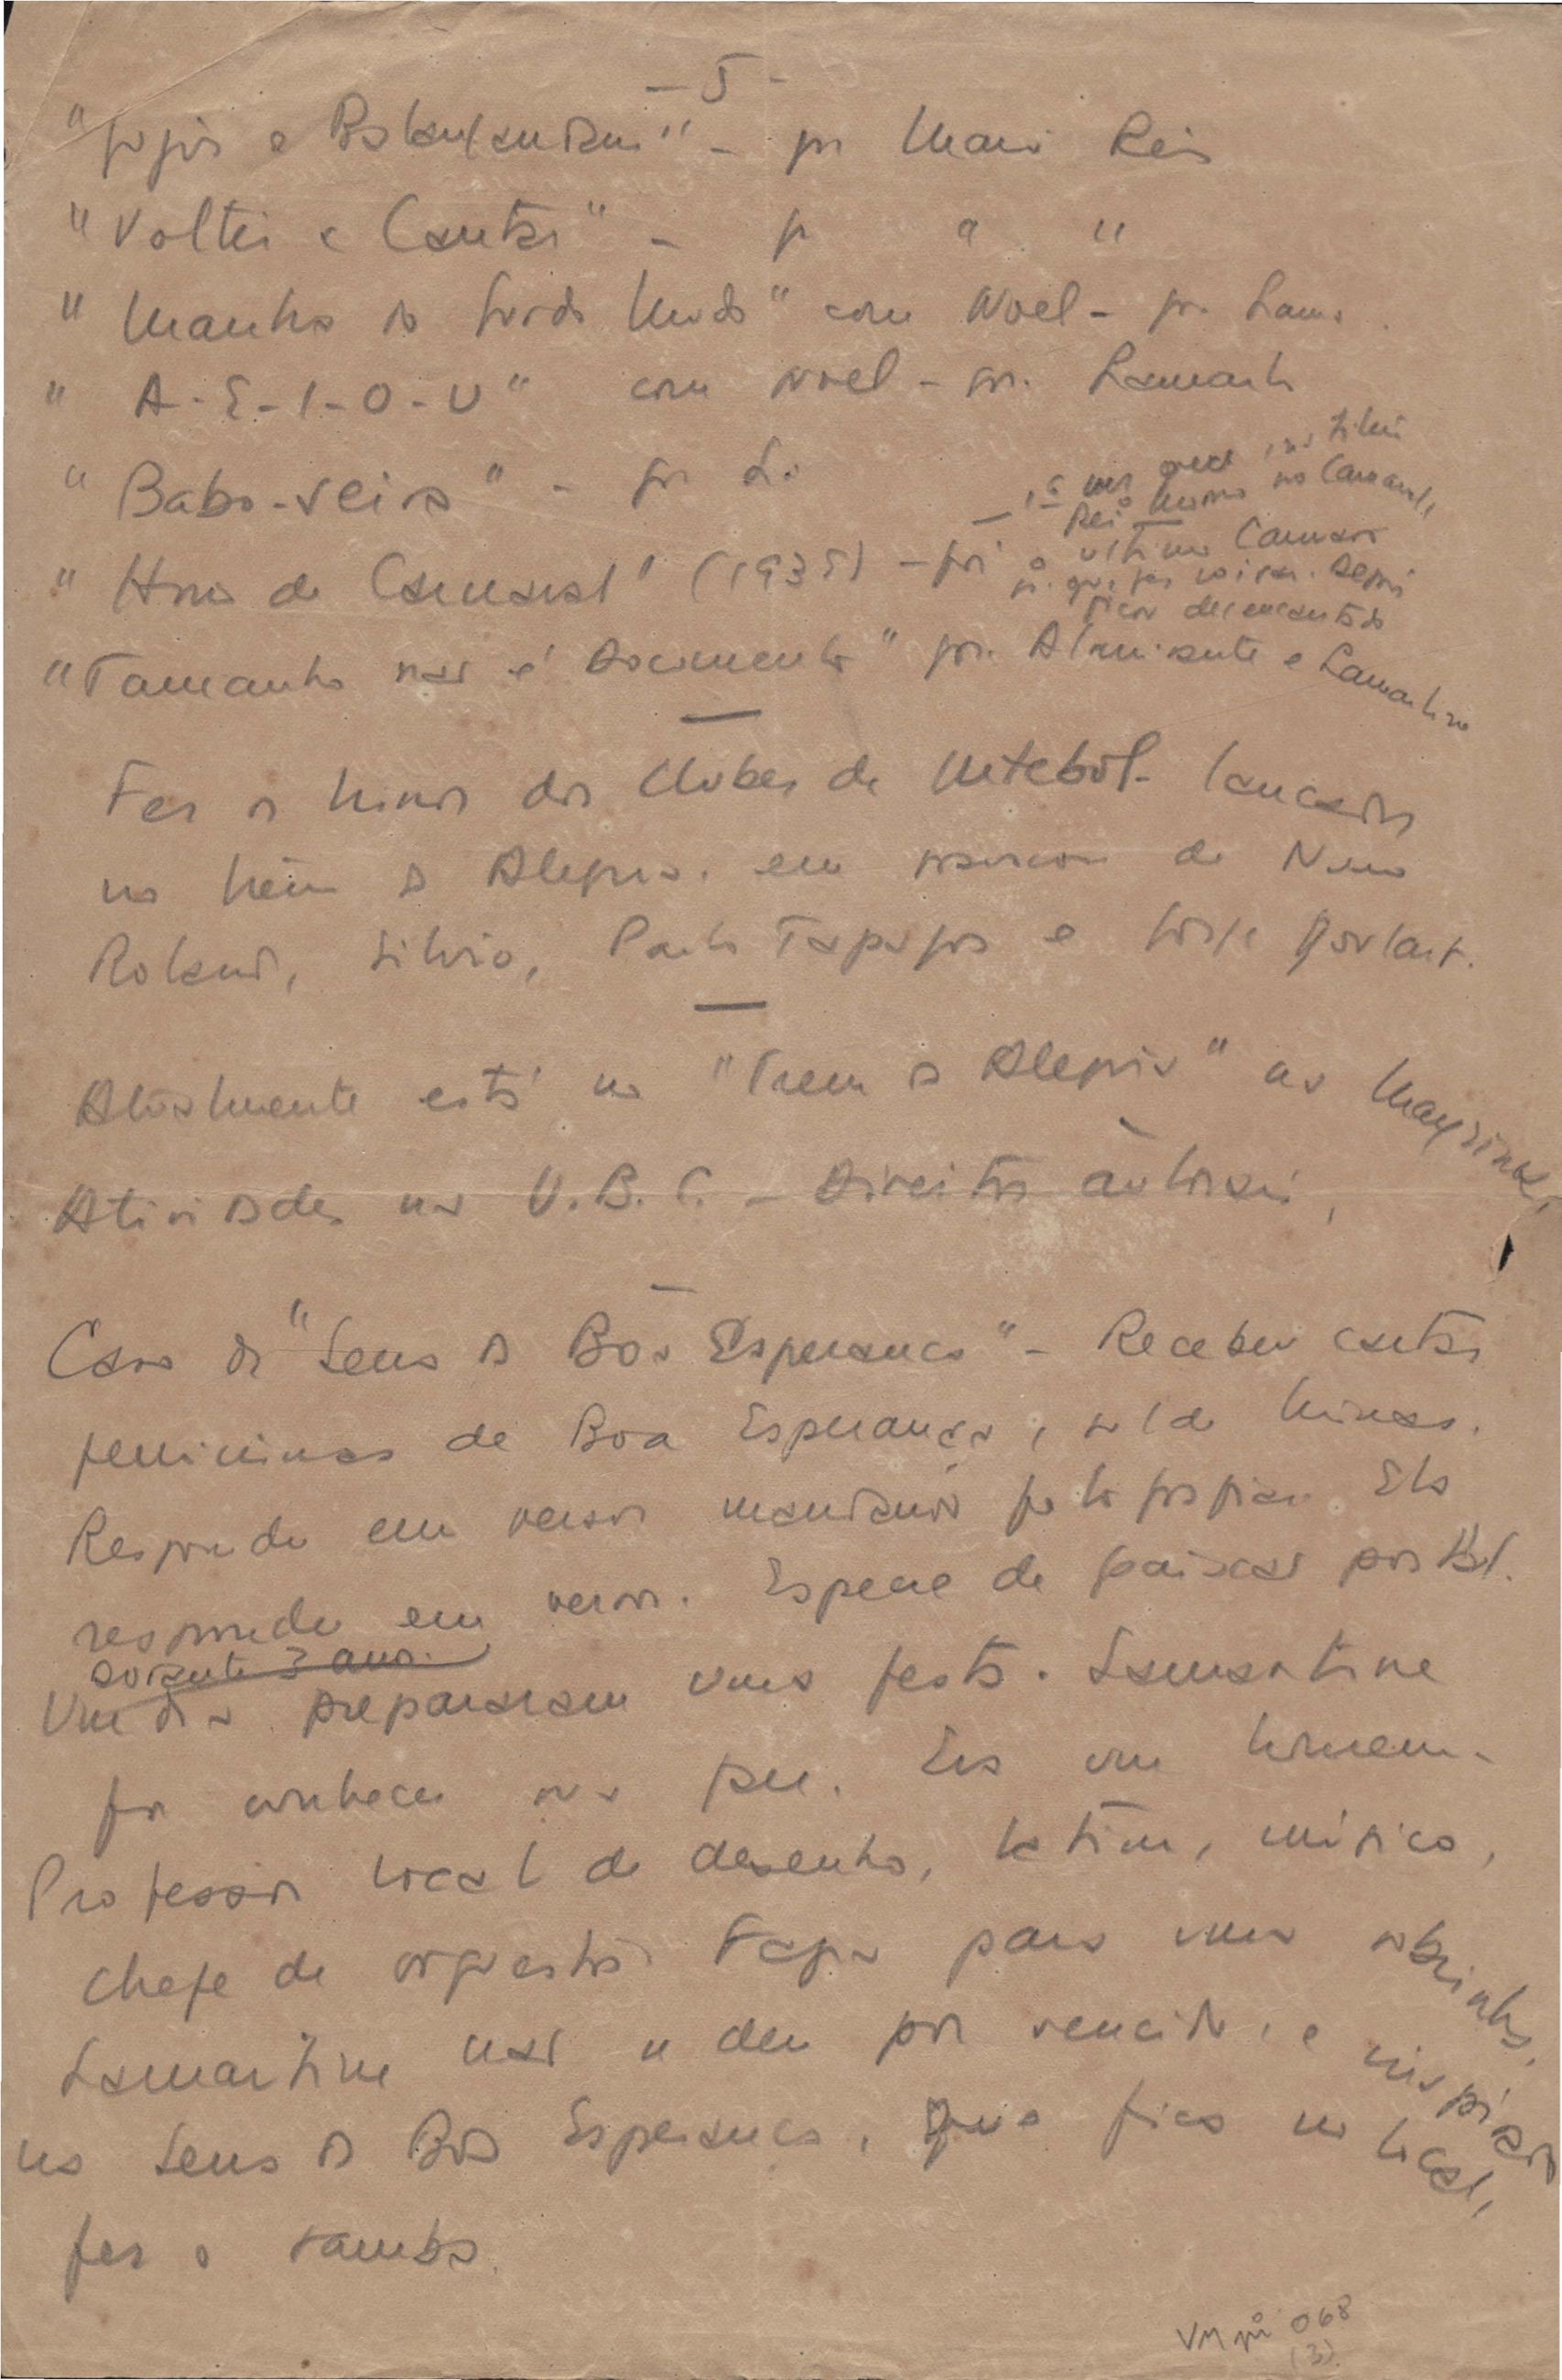 - 5 -
"Jojoux e Balangandans" - por Mario Reis
"Voltei a Cantar" - por " "
"Marcha do Gordo Mudo" com Noel - por Lama.
"A-E-I-O-U" com Noel - por Lamart
"Babo-seira" - por La
"Hino do Carnaval" (1935) - por
- 1a vez que
Rei Momo no Carnaval,
o ultimo Carnaval
Depois
ficou desencantado
"Tamanho não é Documento" por Almirante e Lamartine
Fez os hinos dos clubes de futebol lançados
no trem da Alegria. em gravacao de Nuno
Roland, Silvio, Paulo Tapajos e Jorge Goulart.
Atualmente está no "Trem da Alegria" na Mayrink,
Atividades na U.B.C. - Direitos autorais,
Caso da "Serra da Boa Esperança" - Recebeu cartas
femininas de Boa Esperança, sul de Minas.
Responde em versos mandando fotografias. Ela
responde em versos. Especie de paixão postal.
durante 3 anos.
Um dia prepararam uma festa. Lamartine
foi conhecer seu par. Era um homem.
Professor local de desenho, latim, música,
chefe de orquestra. Fazia para uma sobrinha.
Lamartine não se deu por vencido, e inspirado
na Serra da Boa Esperança, que fica no local,
fez o samba.
VM pi 068
(3)